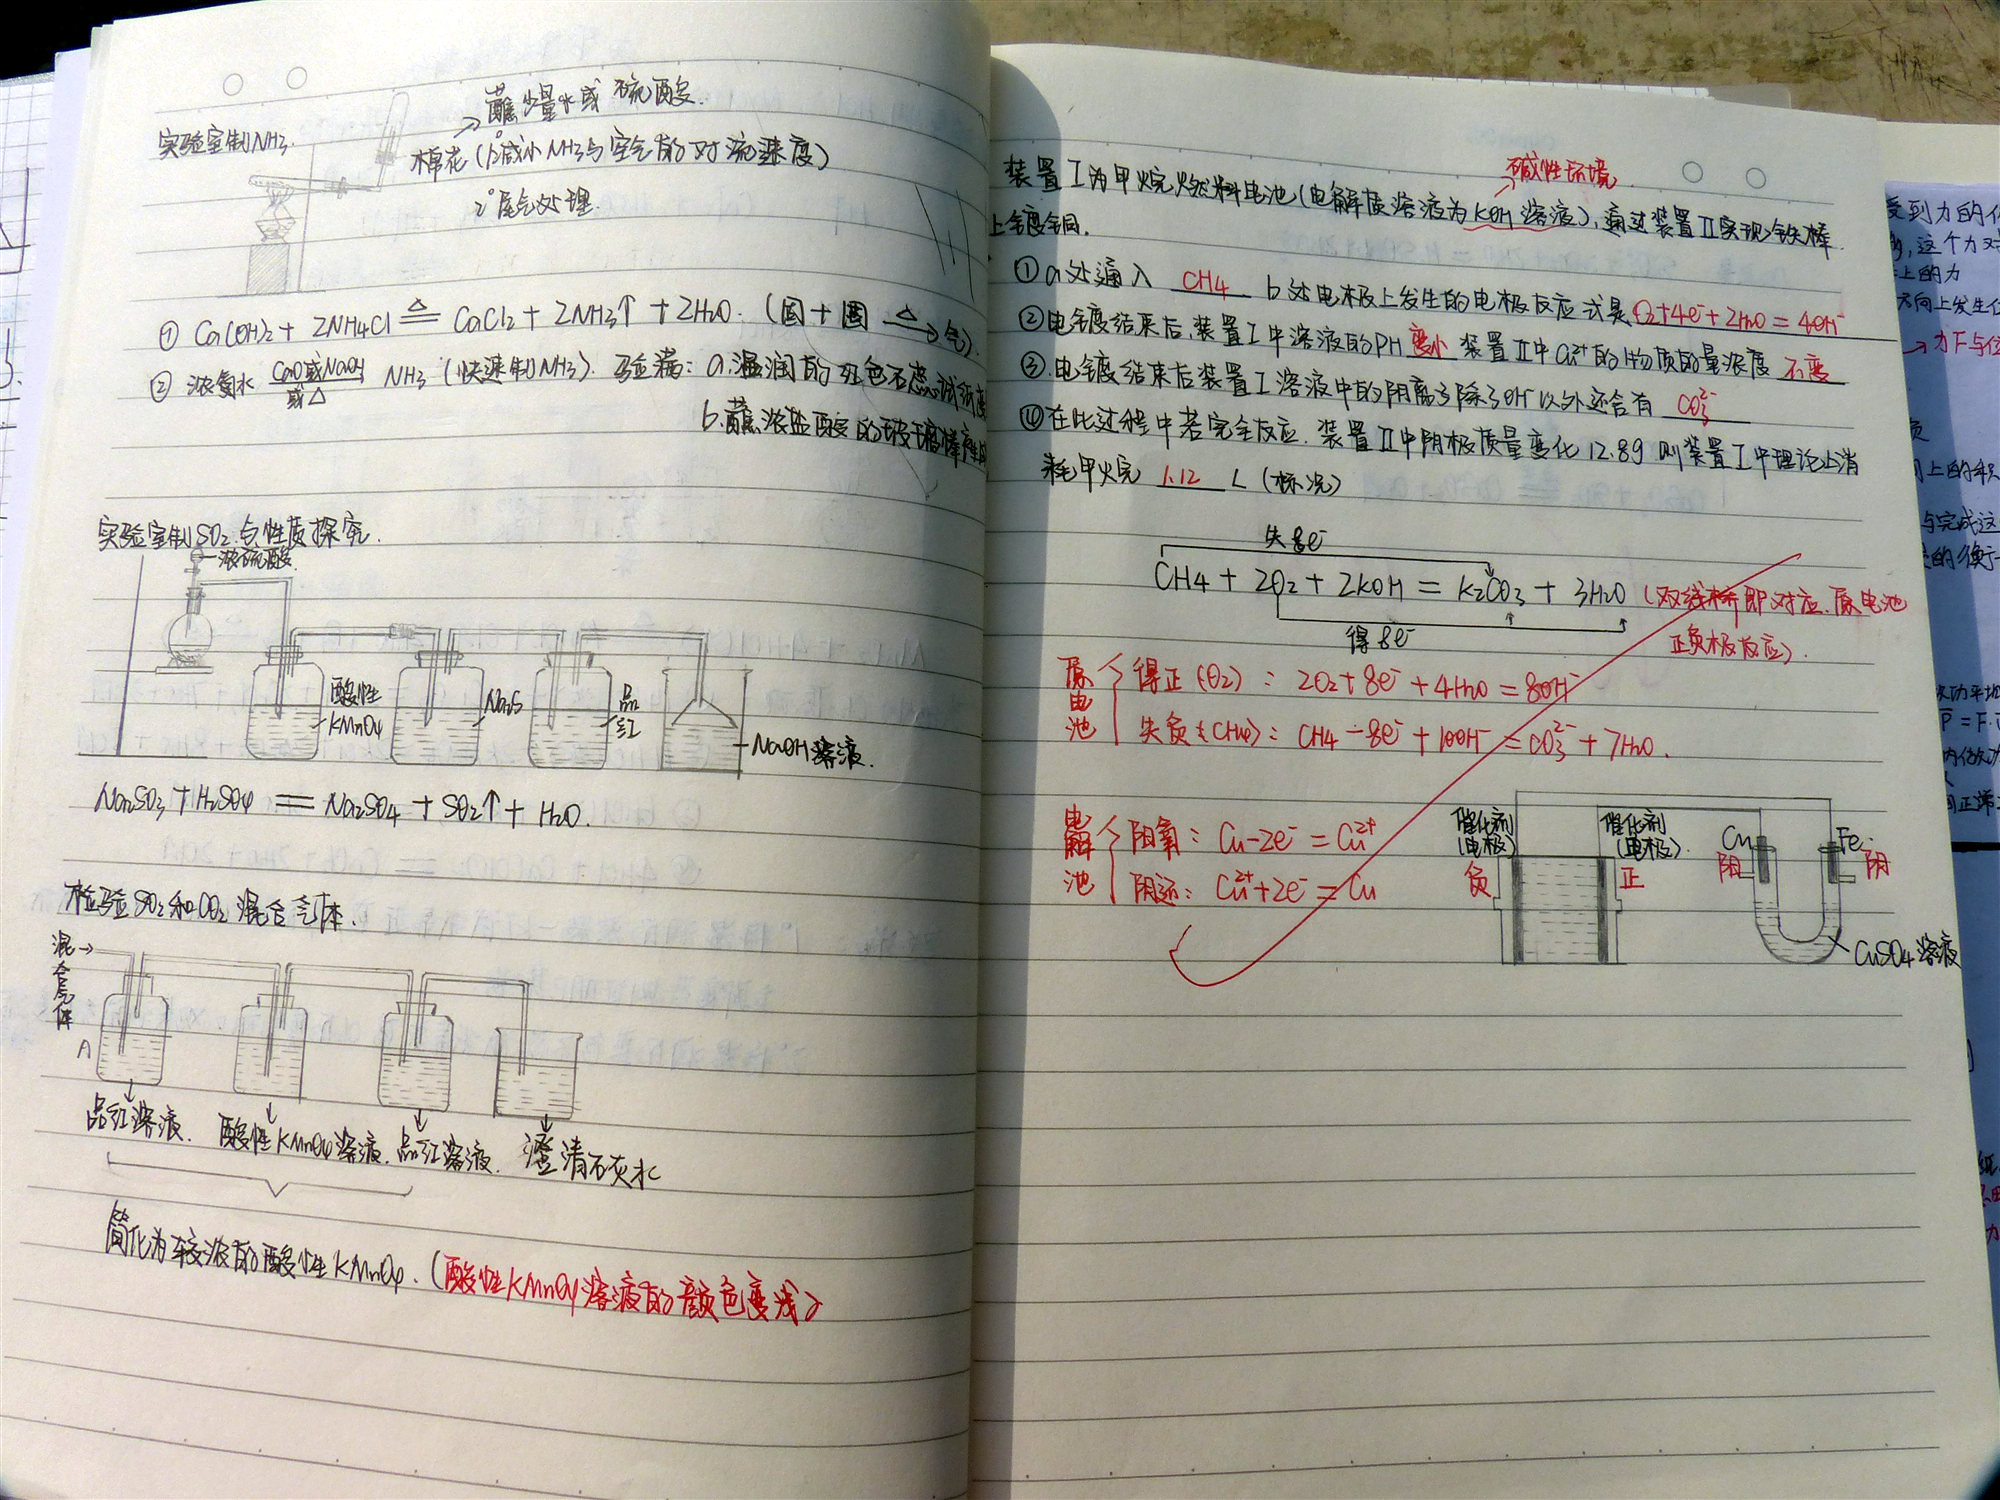 实验室制NH3.
蘸少量水或硫酸.
棉花(1°减小NH3与空气的对流速度)
2°尾气处理.
① Ca(OH)2 + 2NH4Cl ≜ CaCl2 + 2NH3↑ + 2H2O. (固+固 △→ 气).
② 浓氨水 CaO或NaOH 或△ NH3 (快速制NH3). 验满: a.湿润的红色石蕊试纸变
b.蘸浓盐酸的玻璃棒产生
实验室制SO2与性质探究.
浓硫酸
酸性
KMnO4
Na2S
品红
NaOH溶液.
Na2SO3 + H2SO4 == Na2SO4 + SO2↑ + H2O.
检验SO2和CO2混合气体.
混合气体
A
品红溶液. 酸性KMnO4溶液. 品红溶液. 澄清石灰水
简化为较浓的酸性KMnO4. (酸性KMnO4溶液的颜色变浅)
碱性环境
装置I为甲烷燃料电池(电解质溶液为KOH溶液), 通过装置II实现铁棒
上镀铜.
① a处通入 CH4 b处电极上发生的电极反应式是O2+4e-+2H2O=4OH-
② 电镀结束后,装置I中溶液的PH 变小 装置II中Cu2+的物质的量浓度 不变
③.电镀结束后装置I溶液中的阴离子除了OH-以外还含有 CO3^2-
④ 在此过程中若完全反应. 装置II中阴极质量变化12.8g 则装置I中理论上消
耗甲烷 1.12 L (标况)
失8e-
CH4 + 2O2 + 2KOH = K2CO3 + 3H2O (双线桥即对应.原电池
得8e-
正负极反应).
原电池
得正(O2): 2O2+8e-+4H2O=8OH-
失负(CH4): CH4-8e-+10OH-=CO3^2-+7H2O.
电解池
阳氧: Cu-2e-=Cu2+
阴还: Cu2++2e-=Cu
催化剂
(电极)
负
催化剂
(电极).
正
Cu
阳
Fe
阴
CuSO4溶液
受到力的
这个力对
上的力
方向上发生位
→力F与位
上的积
与完成这
P=F·